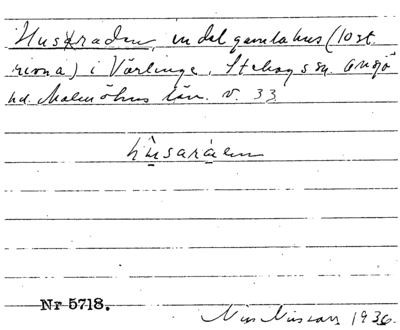 Husraden, en del gamla hus (10 st.
rivna) i Värlinge, Stehags sn. Onsjö
hd. Malmöhus län. v. 33
hu̱sarạ̊en
Nr 5718.
Nils Nilsson 1936.